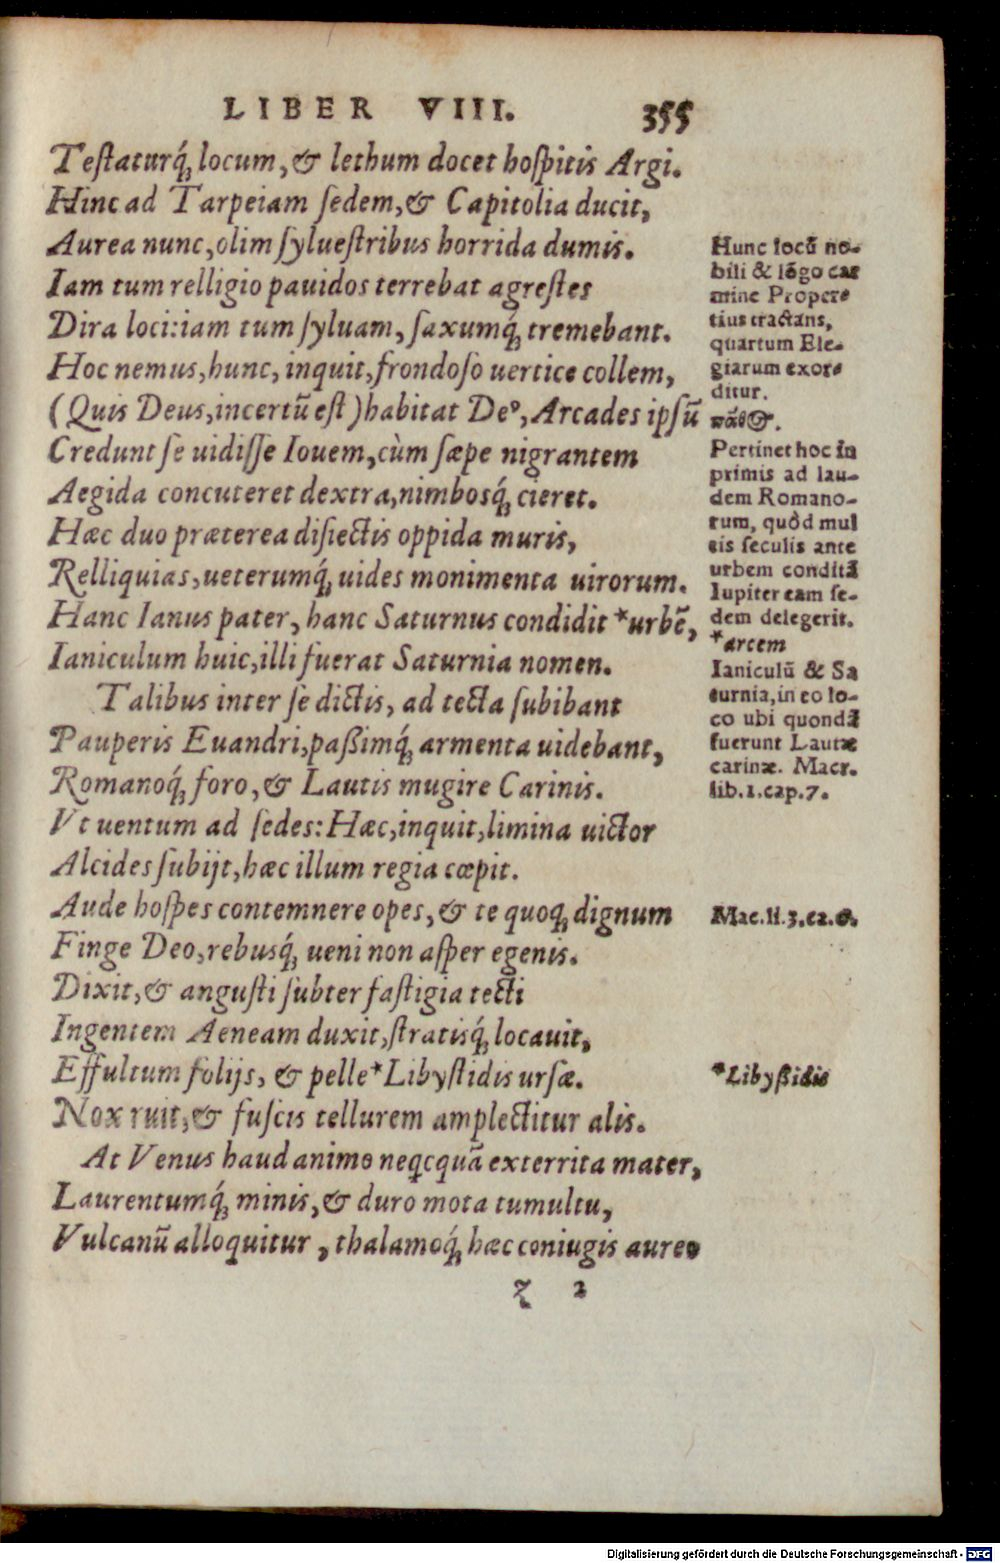 LIBER VIII. 355
Testaturq́; locum, & lethum docet hospitis Argi.
Hinc ad Tarpeiam sedem, & Capitolia ducit,
Aurea nunc, olim syluestribus horrida dumis.
Iam tum relligio pauidos terrebat agrestes
Dira loci: iam tum syluam, saxumq́; tremebant.
Hoc nemus, hunc, inquit, frondoso uertice collem,
(Quis Deus, incertũ est) habitat Deꝰ, Arcades ipsũ
Credunt se uidisse Iouem, cùm sæpe nigrantem
Aegida concuteret dextra, nimbosq́; cieret.
Hæc duo præterea disiectis oppida muris,
Relliquias, ueterumq́; uides monimenta uirorum.
Hanc Ianus pater, hanc Saturnus condidit *urbẽ,
Ianiculum huic, illi fuerat Saturnia nomen.
Talibus inter se dictis, ad tecta subibant
Pauperis Euandri, paßimq́; armenta uidebant,
Romanoq́; foro, & Lautis mugire Carinis.
Vt uentum ad sedes: Hæc, inquit, limina uictor
Alcides subijt, hæc illum regia cœpit.
Aude hospes contemnere opes, & te quoq; dignum
Finge Deo, rebusq́; ueni non asper egenis.
Dixit, & angusti subter fastigia tecti
Ingentem Aeneam duxit, stratisq́; locauit,
Effultum folijs, & pelle *Libystidis ursæ.
Nox ruit, & fuscis tellurem amplectitur alis.
At Venus haud animo neqcquã exterrita mater,
Laurentumq́; minis, & duro mota tumultu,
Vulcanũ alloquitur, thalamoq́; hæc coniugis aureo
z 2
Hunc locũ no-
bili & lõgo car
mine Proper-
tius tractans,
quartum Ele-
giarum exor-
ditur.
Pertinet hoc in
primis ad lau-
dem Romano-
rum, quòd mul
tis seculis ante
urbem conditã
Iupiter eam se-
dem delegerit.
*arcem
Ianiculũ & Sa
turnia, in eo lo-
co ubi quondã
fuerunt Lautæ
carinæ. Macr.
lib.1.cap.7.
Mac.li.3.ca.6.
*Libyßidis
Digitalisierung gefördert durch die Deutsche Forschungsgemeinschaft - DFG